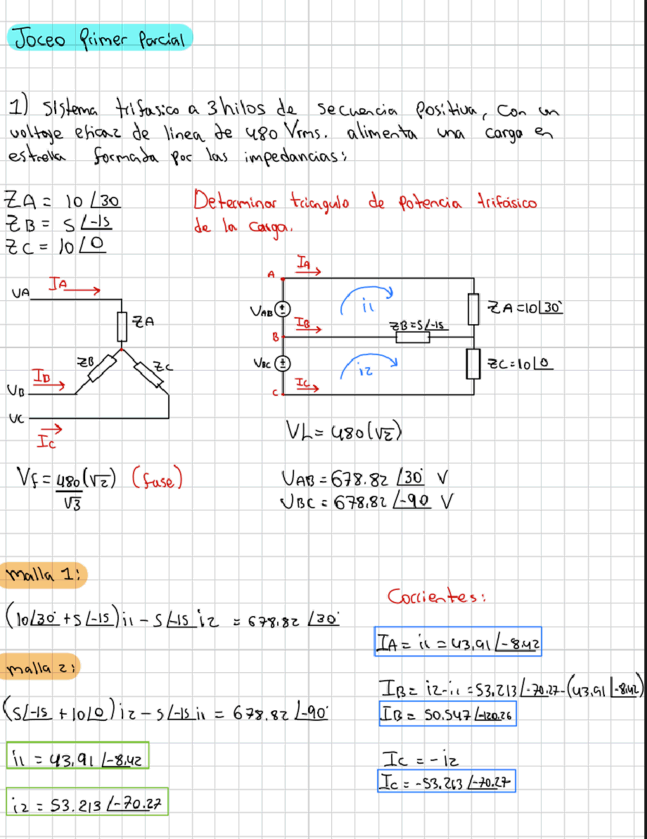 Joceo Primer Parcial
1) Sistema trifasico a 3 hilos de secuencia positiva, con un
voltaje eficaz de linea de 480 Vrms. alimenta una carga en
estrella formada por las impedancias:
ZA = 10 ∠30
ZB = 5 ∠-15
ZC = 10 ∠0
Determinar triangulo de potencia trifásico
de la carga.
VA
IA
ZA
ZB
ZC
VB
IB
VC
IC
A
IA
VAB
i1
ZA=10∠30°
B
IB
ZB=5∠-15
VBC
i2
ZC=10∠0
C
IC
VL=480(√2)
Vf=480(√2)/√3 (fase)
VAB=678.82 ∠30° V
VBC=678.82 ∠-90 V
malla 1:
(10∠30° + 5∠-15)i1 - 5∠-15 i2 = 678.82 ∠30°
malla 2:
(5∠-15 + 10∠0)i2 - 5∠-15 i1 = 678.82 ∠-90°
i1 = 43,91 ∠-8.42
i2 = 53.213 ∠-70.27
Corrientes:
IA = i1 = 43,91 ∠-8.42
IB = i2-i1 = 53.213∠-70.27-(43,91∠-8.42)
IB = 50.547∠-120.26
IC = -i2
IC = -53.213∠-70.27